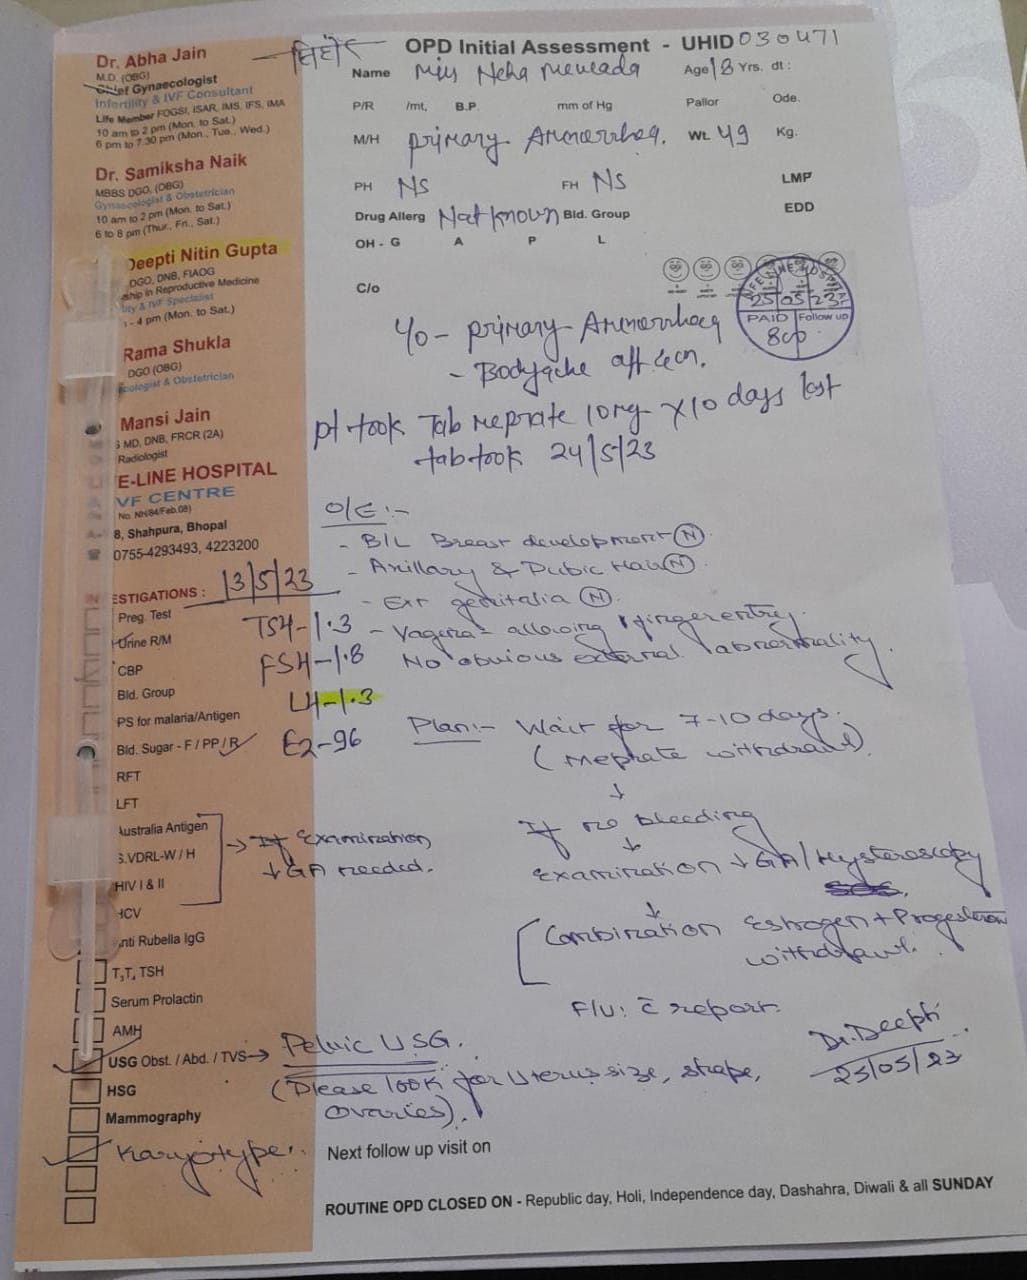 Dr. Abha Jain
M.D. (OBG)
Chief Gynaecologist
Infertility & IVF Consultant
Life Member FOGSI, ISAR, IMS, IFS, IMA
10 am to 2 pm (Mon. to Sat.)
6 pm to 7.30 pm (Mon., Tue., Wed.)
Dr. Samiksha Naik
MBBS DGO, (OBG)
Gynaecologist & Obstetrician
10 am to 2 pm (Mon. to Sat.)
6 to 8 pm (Thur., Fri., Sat.)
Deepti Nitin Gupta
DGO, DNB, FIAOG
ship in Reproductive Medicine
ity & IVF Specialist
- 4 pm (Mon. to Sat.)
Rama Shukla
DGO (OBG)
cologist & Obstetrician
Mansi Jain
MD, DNB, FRCR (2A)
Radiologist
E-LINE HOSPITAL
VF CENTRE
No. NH/84/Feb.08)
8, Shahpura, Bhopal
0755-4293493, 4223200
OPD Initial Assessment - UHID 030471
Name Miss Neha Age 18 Yrs. dt :
P/R /mt, B.P. mm of Hg Pallor Ode.
M/H primary Ammerrhea. Wt. 49 Kg.
PH NS FH NS LMP
Drug Allerg Not known Bld. Group EDD
OH - G A P L
C/o
25 05 23
PAID Follow up
800
- primary Ammerrhoea
- Bodyache
pt took Tab meprate 10mg x 10 days last
tab took 24/5/23
O/E :-
- B/L Breast development (N).
- Axillary & Pubic Hair (N).
- Ext genitalia (N).
- Vagina - allowing 1 finger entry.
No obvious external abnormality.
Plan:- Wait for 7-10 days.
(Meprate withdrawl).
↓
If no bleeding
↓
Examination ↓ GA / Hysteroscopy
SOS.
↓
[Combination Estrogen + Progesteron
withdrawl.
F/U: c̄ report.
Dr. Deepti
25/05/23
ESTIGATIONS : 13/5/23
Preg. Test
Urine R/M TSH-1.3
CBP FSH-1.8
Bld. Group LH-1.3
PS for malaria/Antigen
Bld. Sugar - F / PP / R E2-96
RFT
LFT
Australia Antigen
S.VDRL-W / H → If Examination
HIV I & II ↓ GA needed.
HCV
nti Rubella IgG
T₃T₄ TSH
Serum Prolactin
AMH
USG Obst. / Abd. / TVS → Pelvic USG.
HSG (Please look for Uterus size, shape,
Mammography ovaries).
Karyotype.
Next follow up visit on
ROUTINE OPD CLOSED ON - Republic day, Holi, Independence day, Dashahra, Diwali & all SUNDAY